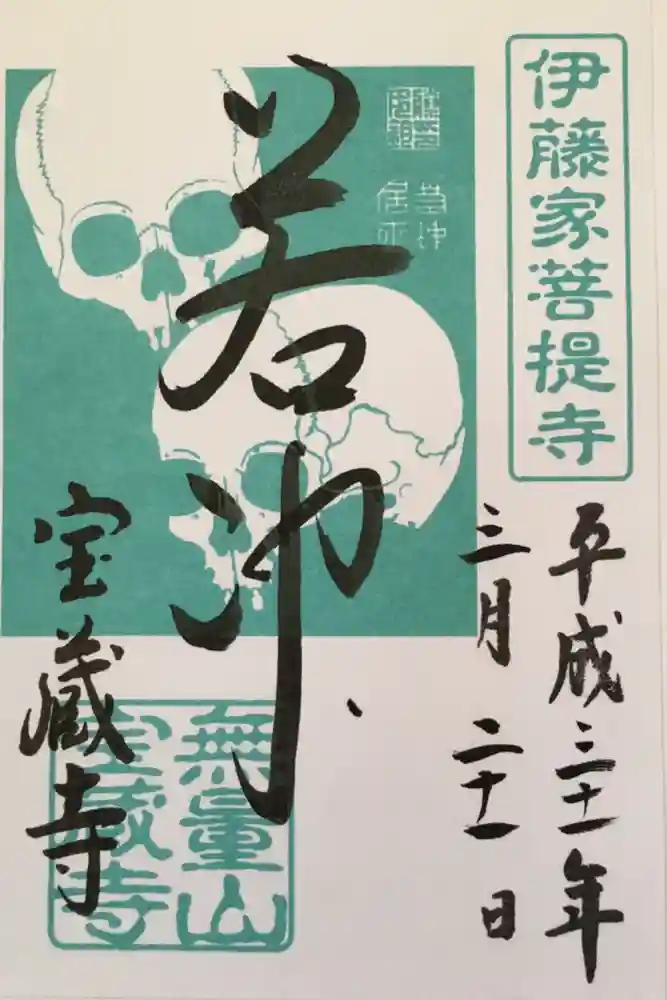 伊藤家菩提寺
平成三十一年
三月二十一日
若冲
若冲
居士
宝蔵寺
無量山
宝蔵寺